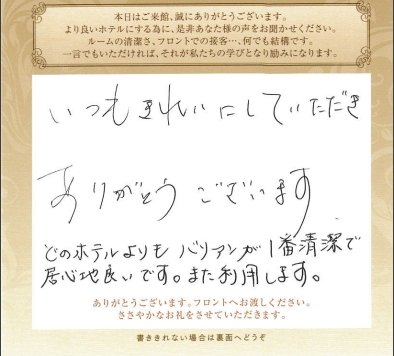 本日はご来館、誠にありがとうございます。
より良いホテルにする為に、是非あなた様の声をお聞かせください。
ルームの清潔さ、フロントでの接客…、何でも結構です。
一言でもいただければ、それが私たちの学びとなり励みになります。
いつもきれいにしていただき
ありがとうございます
どのホテルよりもバリアンが1番清潔で
居心地良いです。また利用します。
ありがとうございます。フロントへお渡しください。
ささやかなお礼をさせていただきます。
書ききれない場合は裏面へどうぞ